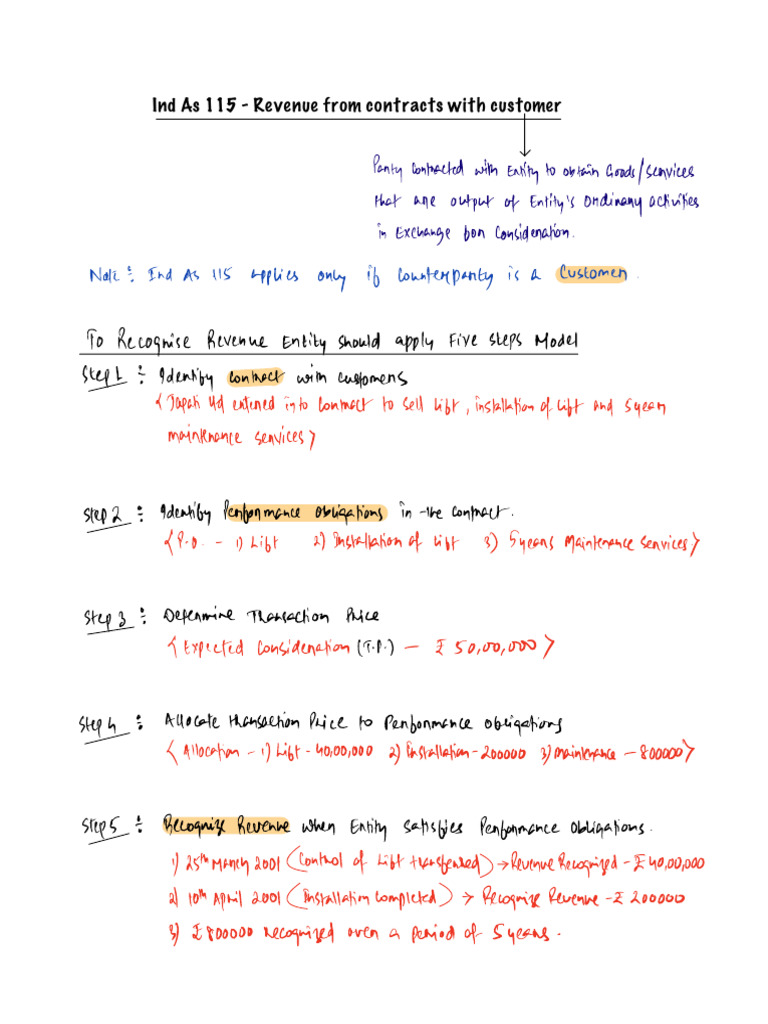 Ind As 115 - Revenue from contracts with customer
Party Contracted with Entity to obtain Goods/services
that are output of Entity's Ordinary activities
in Exchange for Consideration.
Note : Ind As 115 applies only if Counterparty is a Customer.
To Recognise Revenue Entity should apply Five steps Model
Step 1 : Identify contract with customers
< Japati ltd entered into Contract to sell lift, installation of lift and 5 year
maintenance services >
Step 2 : Identify Performance Obligations in the contract.
< P.O. - 1) Lift 2) Installation of lift 3) 5 years Maintenance Services >
Step 3 : Determine Transaction Price
< Expected Consideration (T.P.) - ₹ 50,00,000 >
Step 4 : Allocate transaction Price to Performance obligations
< Allocation - 1) Lift - 40,00,000 2) Installation - 200000 3) maintenance - 800000 >
Step 5 : Recognize Revenue when Entity satisfies Performance Obligations.
1) 25th March 2001 (Control of lift transferred) → Revenue Recognized - ₹ 40,00,000
2) 10th April 2001 (Installation Completed) → Recognize Revenue - ₹ 200000
3) ₹ 800000 recognized over a period of 5 years.